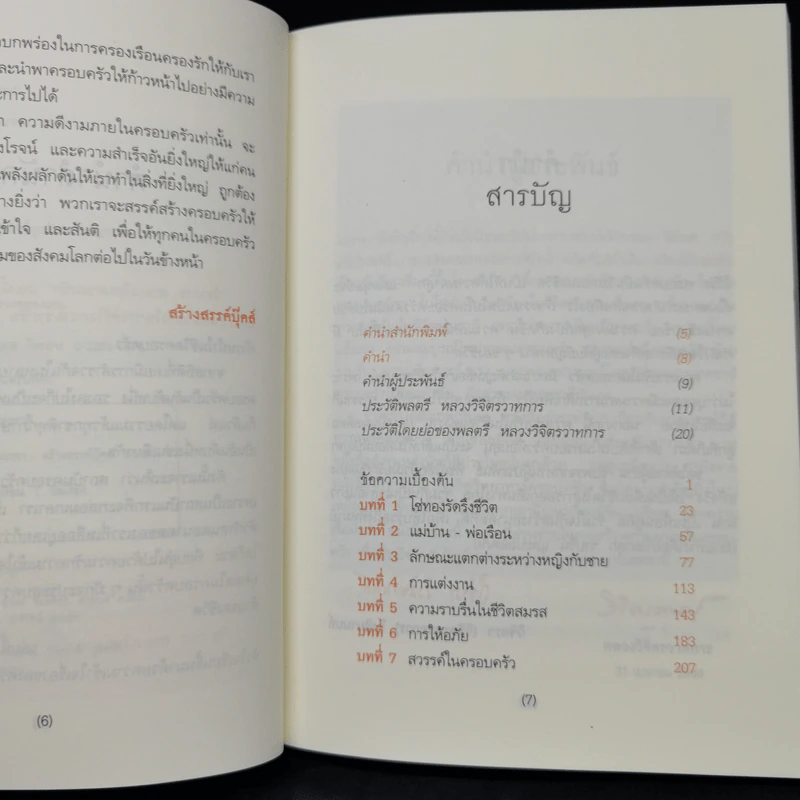 บกพร่องในการครองเรือนครองรักให้กับเรา
ละนำพาครอบครัวให้ก้าวหน้าไปอย่างมีความ
ะการไปได้
ความดีงามภายในครอบครัวเท่านั้น จะ
งโรจน์ และความสำเร็จอันยิ่งใหญ่ให้แก่คน
พลังผลักดันให้เราทำในสิ่งที่ยิ่งใหญ่ ถูกต้อง
างยิ่งว่า พวกเราจะสรรค์สร้างครอบครัวให้
ข้าใจ และสันติ เพื่อให้ทุกคนในครอบครัว
มของสังคมโลกต่อไปในวันข้างหน้า
สร้างสรรค์บุ๊คส์
(6)
สารบัญ
คำนำสำนักพิมพ์ (5)
คำนำ (8)
คำนำผู้ประพันธ์ (9)
ประวัติพลตรี หลวงวิจิตรวาทการ (11)
ประวัติโดยย่อของพลตรี หลวงวิจิตรวาทการ (20)
ข้อความเบื้องต้น 1
บทที่ 1 โซ่ทองรัดรึงชีวิต 23
บทที่ 2 แม่บ้าน - พ่อเรือน 67
บทที่ 3 ลักษณะแตกต่างระหว่างหญิงกับชาย 77
บทที่ 4 การแต่งงาน 113
บทที่ 5 ความราบรื่นในชีวิตสมรส 143
บทที่ 6 การให้อภัย 183
บทที่ 7 สวรรค์ในครอบครัว 207
(7)